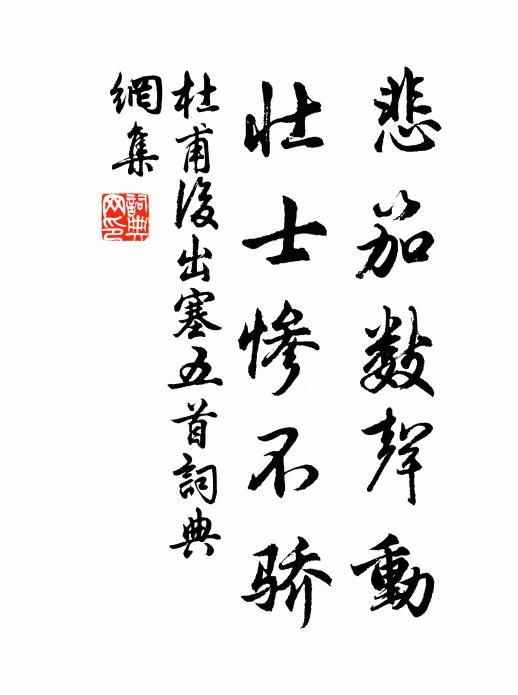 悲笳數聲動
壯士慘不骄
杜甫後出塞五首詞典
網集
詞典
网印